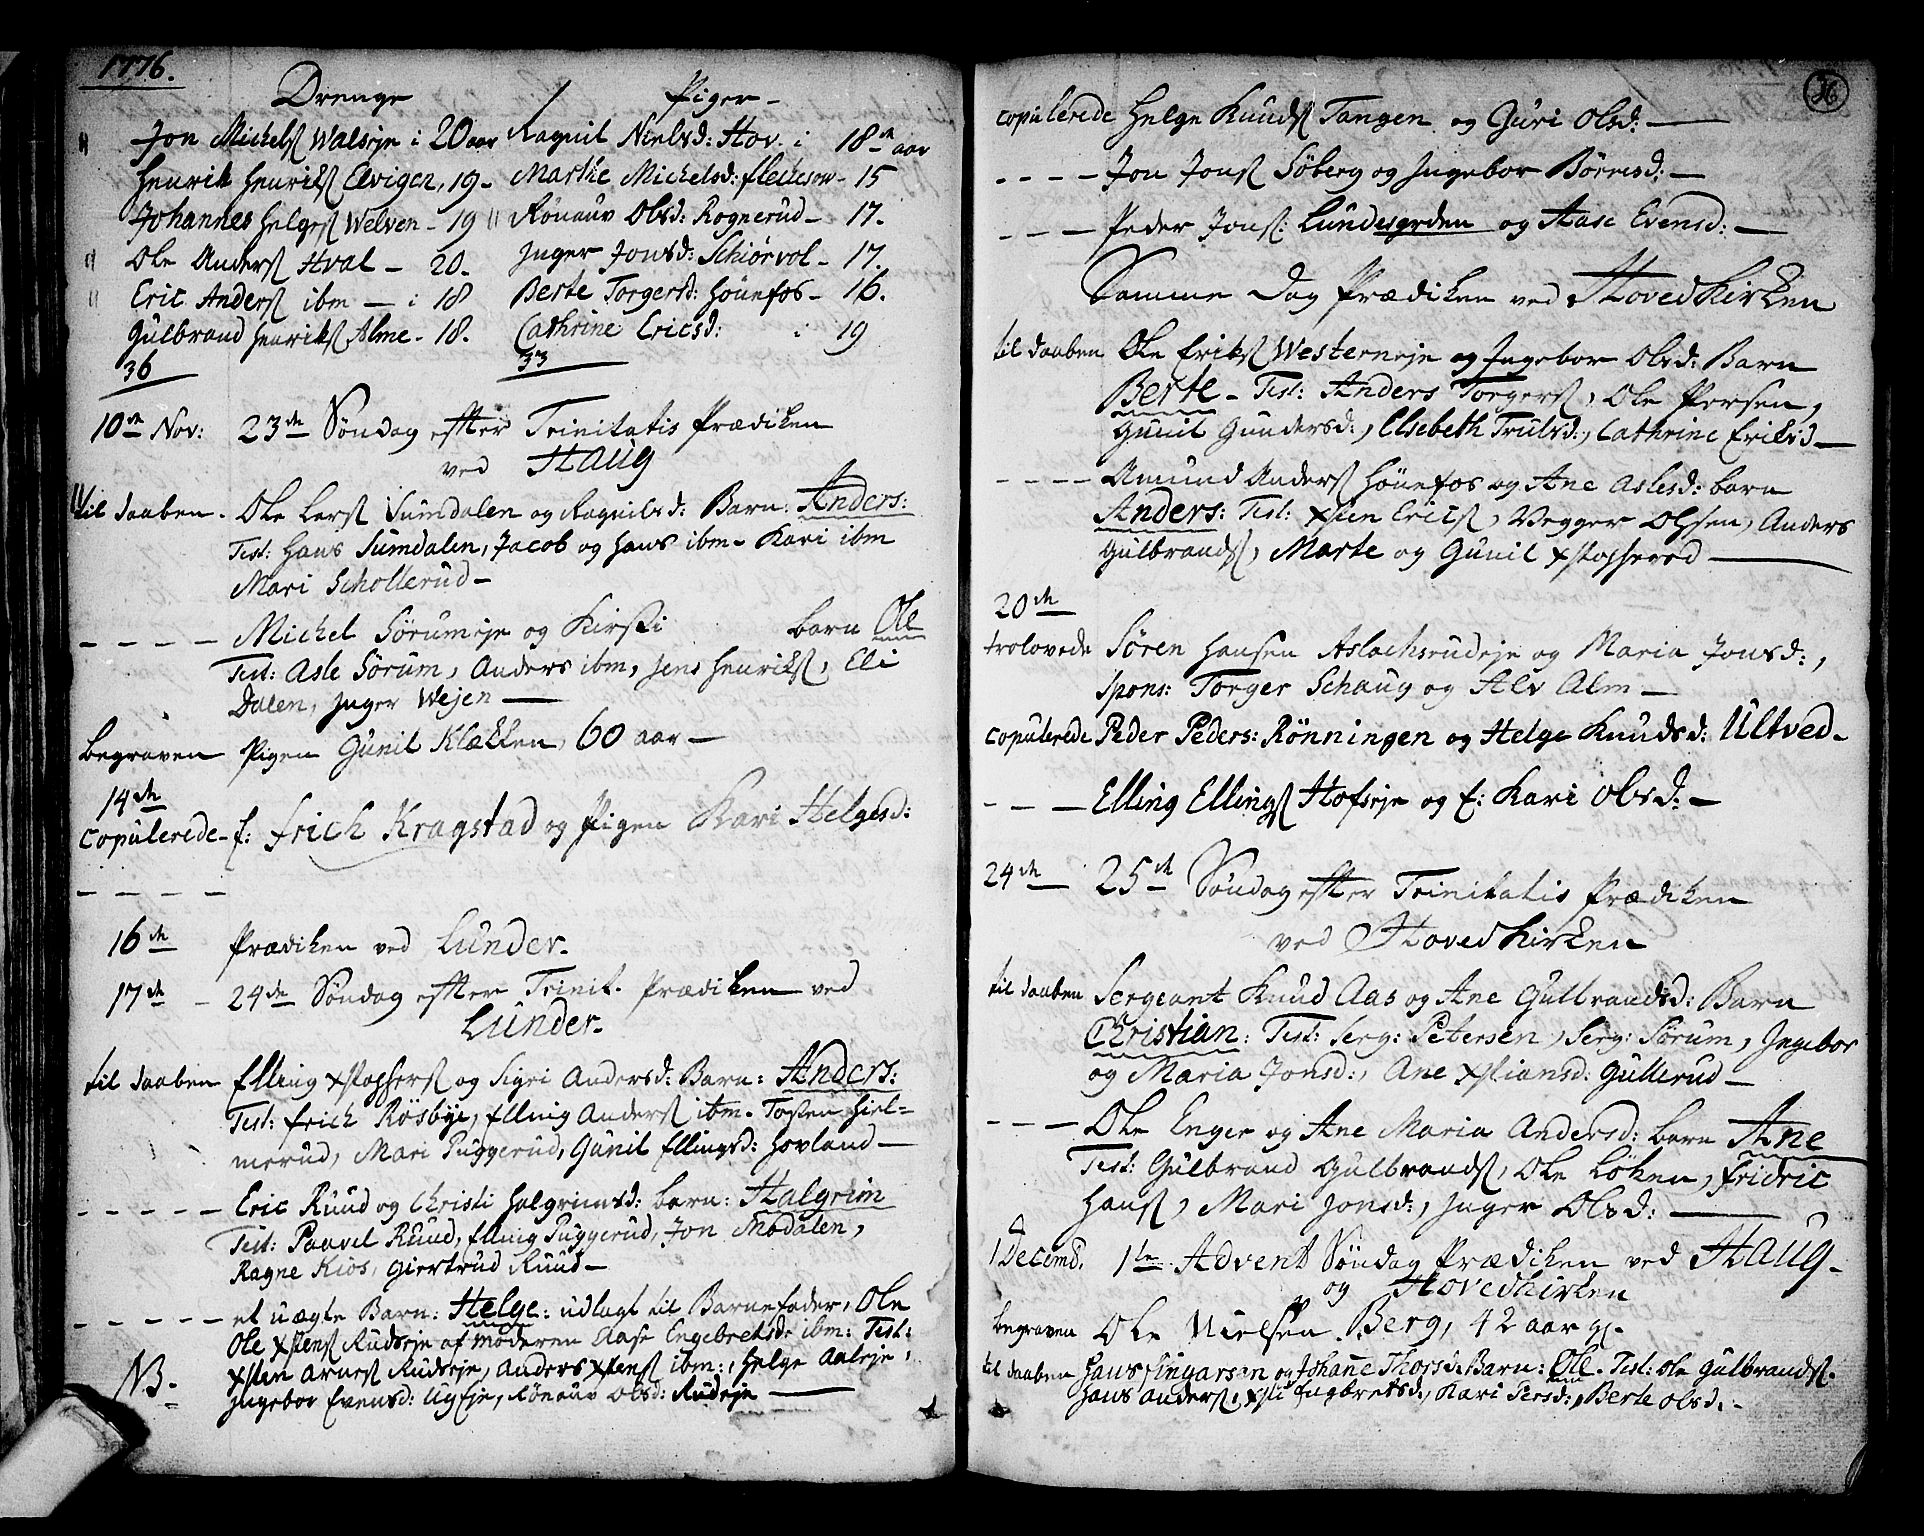 1776.
Drenge
Jon Michels Walseje i 20 aar
Henrik Henriks Elvigen, 19-
Johannes Helges Welven - 19
Ole Anders Hval - 20.
Eric Anders ibm - i 18
Gulbrand Henriks Alme - 18.
36
Piger-
Ragnil Nielsd: Hov. i 18 aar
Marthe Michelsd: - 15
Rönauv Olsd: Rognerud - 17.
Inger Jonsd: Schiörvol - 17.
Berte Torgersd: Hönefos - 16.
Cathrine Ericsd: i 19
33
10de Nov: 23de Söndag efter Trinitatis Prædiken
ved Haug
til daaben. Ole Lars Sumdalen og Ragnilsd: Barn: Anders:
Test: Hans Sumdalen, Jacob og Hans ibm- Kari ibm
Mari Schollerud-
---- Michel Sörumeje og Kirsti barn Ole
Test: Asle Sörum, Anders ibm, Jens Henriks, Eli
Dalen, Inger Wejen —
begraven Pigen Gunil Klækken, 60 aar -
14de
copulerede - E: Erich Kragstad og Pigen Kari Helgesd:
----
16de Prædiken ved Lunder-
17de - 24de Söndag efter Trinit. Prædiken ved
Lunder-
til daaben Elling Xstophers og Sigri Andersd: Barn: Anders:
Test: Erich Rösbye, Elling Anders ibm- Tosten Hiel=
merud, Mari Puggerud, Gunil Ellingsd: Hovland —
----- Eric Ruud og Christi Halgrimsd: barn: Halgrim
Test: Paavel Ruud, Elling Puggerud, Jon Modalen,
Ragne Kios, Giertrud Ruud-
----- et uægte Barn: Helge: udlagt til Barnefader, Ole
Ole Xstens Rudseje af moderen Aase Engebretsd: ibm: Test:
Xsten Arnes Rudseje, Anders Xstens ibm:, Helge Aaleje,
NB- Ingebor Evensd: , Rönauv Olsd: Rudeje —
26
copulerede Helge Knuds Tangen og Guri Olsd: —
---- Jon Jons Söberg og Ingebor Börresd: —
---- Peder Jons: Lundesgrden og Aase Evensd: —
Samme Dag Prædiken ved Hoved Kirken
til daaben Ole Eriks Westerneje og Ingebor Olsd: Barn
Berte - Test: Anders Torgers, Ole Persen,
Gunil Gundersd:, Elsebeth Trulsd:, Cathrine Eriksd —
---- Amund Anders Hönefos og Ane Aslesd: barn
Anders: Test: Xsten Erics, Vegger Olsen, Anders
Gulbrands, Marte og Gunil —
20de
trolovede Sören Hansen Aslachsrudeje og Maria Jonsd:,
Spons: Torger Schaug og Alv Alm —
copulerede Peder Peders: Rönningen og Helge Knudsd: Ultved-
--- Elling Ellings Hofseje og E: Kari Olsd: -
24de 25de Söndag efter Trinitatis Prædiken
ved Hoved Kirken
til daaben Sergeant Knud Aas og Ane Gulbrandsd: Barn
Christian: Test: Serg: Petersen, Serg: Sörum, Ingebor
og Maria Jonsd:, Ane Xstiansd: Gullerud-
--- Ole Enger og Ane Maria Andersd: barn Ane
Test: Gulbrand Gulbrands, Ole Löken, Fridric
Hans, Mari Jonsd:, Inger Olsd: —
1 Decemb. 1te Advent Söndag Prædiken ved Haug-
og Hovedkirken
begraven Ole Nielsen Berg, 42 aar gl.
til daaben Hans Eingarsen og Johane Thorsd: Barn: Ole. Test: Ole Gulbrands.
Hans Anders, Xsti Engbretsd:, Kari Iversd:, Berte Olsd. -